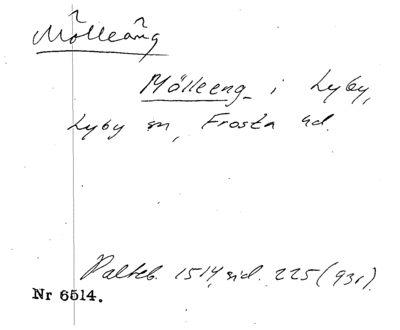 Mölleäng
Mölleeng i Lyby,
Lyby sn, Frosta hd.
Palteb. 1514, sid. 225 (93r).
Nr 6514.